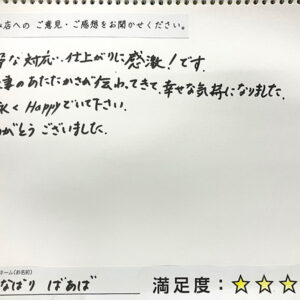 店への ご意見・ご感想をお聞かせください。
な対応、仕上がりに感激！です。
のあたたかさが伝わってきて、幸せな気持になりました。
く Happyでいて下さい。
がとう ございました。
ホーム(お名前)
なばり ばあば
満足度：☆☆☆